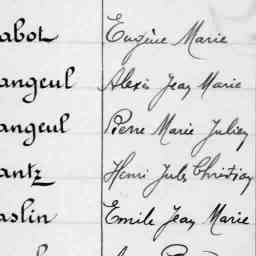 abot Eugène Marie
angeul Alexis Jean Marie
angeul Pierre Marie Julien
antz Henri Jules Christian
aslin Emile Jean Marie